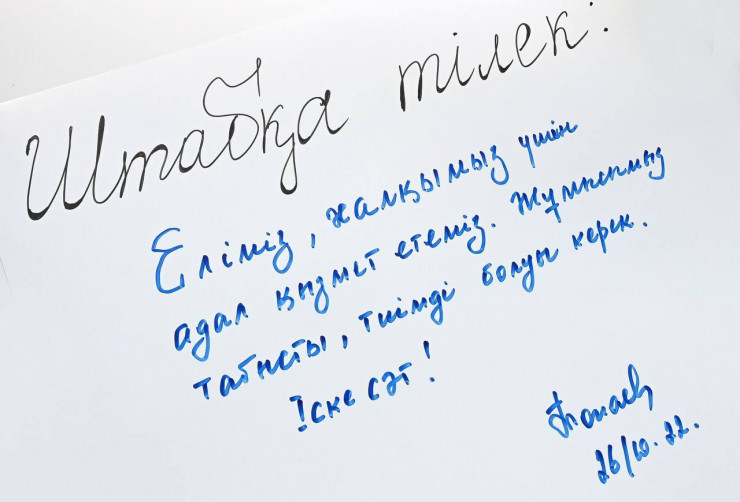 Штабқа тілек:
Еліміз, халқымыз үшін
адал қызмет етеміз. Жұмысымыз
табысты, тиімді болуы керек.
Іске сәт!
Тоқаев
26/10.22.